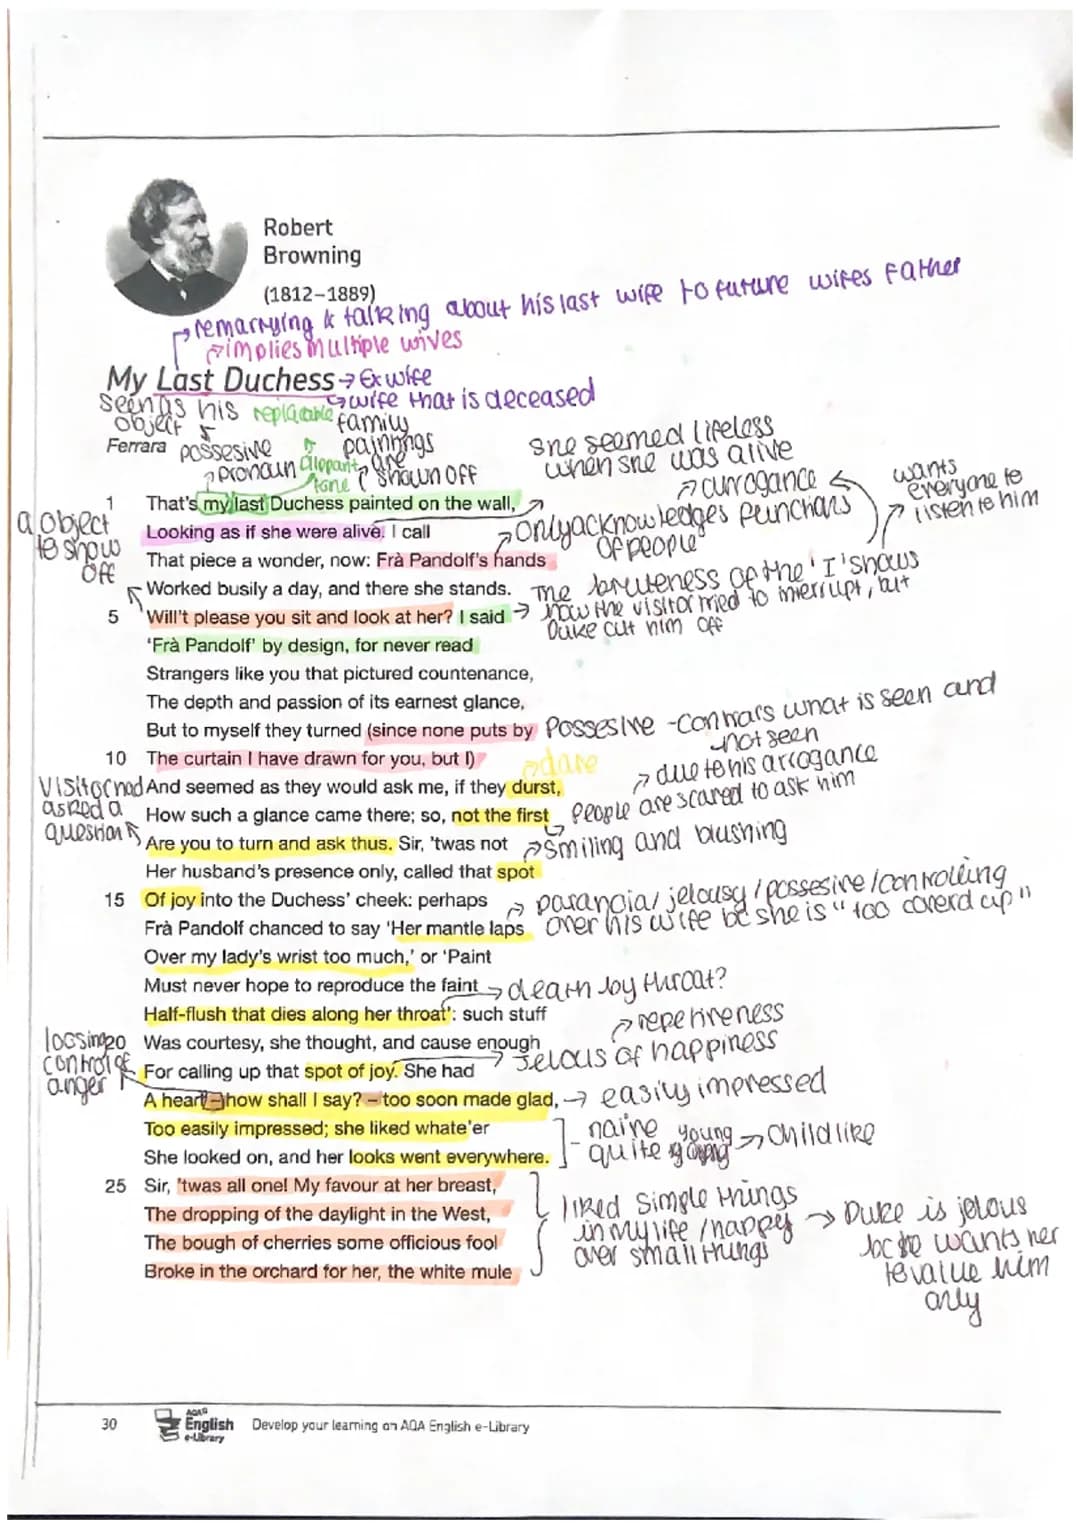 Robert
Browning
(1812–1889)
remarrying & talking about his last wife to future wifes father
implies multiple wives
My Last Duchess → Ex wife
wife that is deceased
seen as his object
replacable
family paintings are shown off
Ferrara
possesive pronoun
tone
she seemed lifeless
when she was alive
arrogance
wants everyone to listen to him
1 That's my last Duchess painted on the wall,
a object to show off
Looking as if she were alive. I call
only acknowledges
of people
That piece a wonder, now: Frà Pandolf's hands
Worked busily a day, and there she stands.
The bruteness of the 'I' shows
how the visitor tried to interrupt, but
Duke cut him off
5 Will't please you sit and look at her? I said
'Frà Pandolf' by design, for never read
Strangers like you that pictured countenance,
The depth and passion of its earnest glance,
But to myself they turned (since none puts by
Possesive - contrars what is seen and
not seen
10 The curtain I have drawn for you, but I)
dare
due to his arrogance
people are scared to ask him
Visitor had asked a question
And seemed as they would ask me, if they durst,
How such a glance came there; so, not the first
Are you to turn and ask thus. Sir, 'twas not
smiling and blushing
Her husband's presence only, called that spot
15 Of joy into the Duchess' cheek: perhaps
paranoia/jelousy/possesive/controlling
over his wife bc she is "too coverd up"
Frà Pandolf chanced to say 'Her mantle laps
Over my lady's wrist too much,' or 'Paint
Must never hope to reproduce the faint
death by throat?
Half-flush that dies along her throat': such stuff
repetiveness
20 Was courtesy, she thought, and cause enough
jelous of happiness
loosing control of anger
For calling up that spot of joy. She had
A heart – how shall I say? – too soon made glad,
→ easily impressed
Too easily impressed; she liked whate'er
naive
quite young
→ Childlike
She looked on, and her looks went everywhere.
25 Sir, 'twas all one! My favour at her breast,
The dropping of the daylight in the West,
The bough of cherries some officious fool
Broke in the orchard for her, the white mule
liked simple things
in my life/happy
over small things
→ Duke is jelous
bc he wants her
to value him
only
30
AQA
English
e-Library
Develop your learning on AQA English e-Library